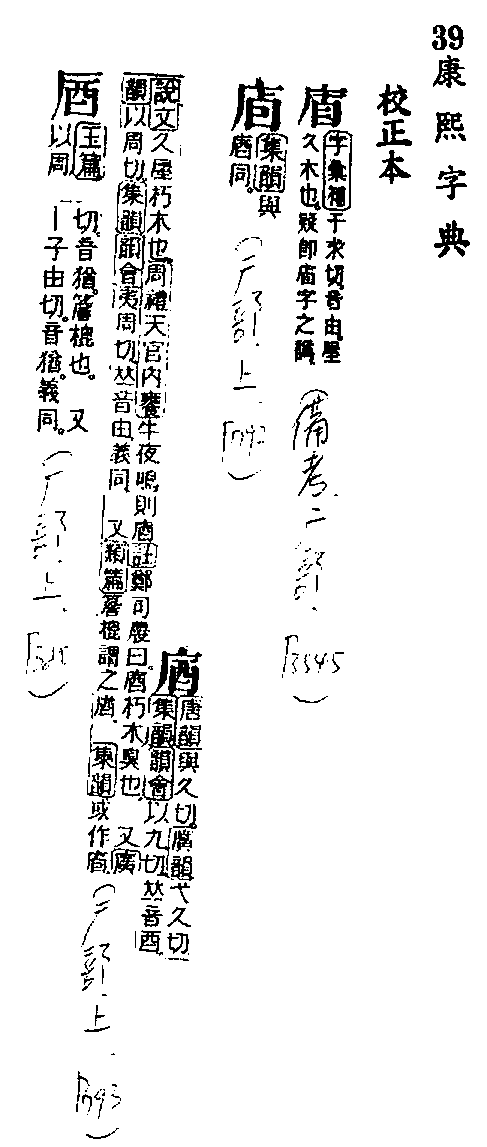 39康熙字典
校正本
字彙補于求切音由屋
久木也疑卽庮字之譌
(備考二部 P3545)
集韻與
庮同
(广部上 P792)
庮
唐韻與久切廣韻弋久切
集韻韻會以九切𠀤音酉
說文久屋朽木也周禮天官內饔牛夜鳴則庮註鄭司農曰庮朽木臭也又廣
韻以周切集韻韻會夷周切𠀤音由義同又類篇謂之庮集韻或作
(广部上 P793)
玉篇
以周
切音猶也又
子由切音猶義同
(厂部上